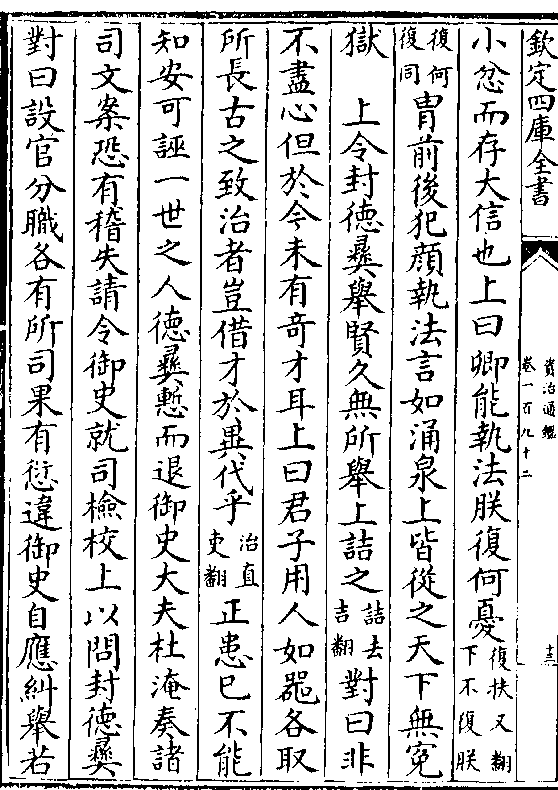 欽定四庫全書
資治通鑑
卷一百九十二
十三
小忿而存大信也上曰卿能執法朕復何憂復扶又翻下不復朕
復何復同胄前後犯顔執法言如涌泉上皆從之天下無冤
獄　上令封德彞舉賢久無所舉上詰之詰去吉翻對曰非
不盡心但於今未有奇才耳上曰君子用人如器各取
所長古之致治者豈借才於異代乎治直吏翻正患已不能
知安可誣一世之人德彞慙而退御史大夫杜淹奏諸
司文案恐有稽失請令御史就司檢校上以問封德彞
對曰設官分職各有所司果有愆違御史自應糾舉若